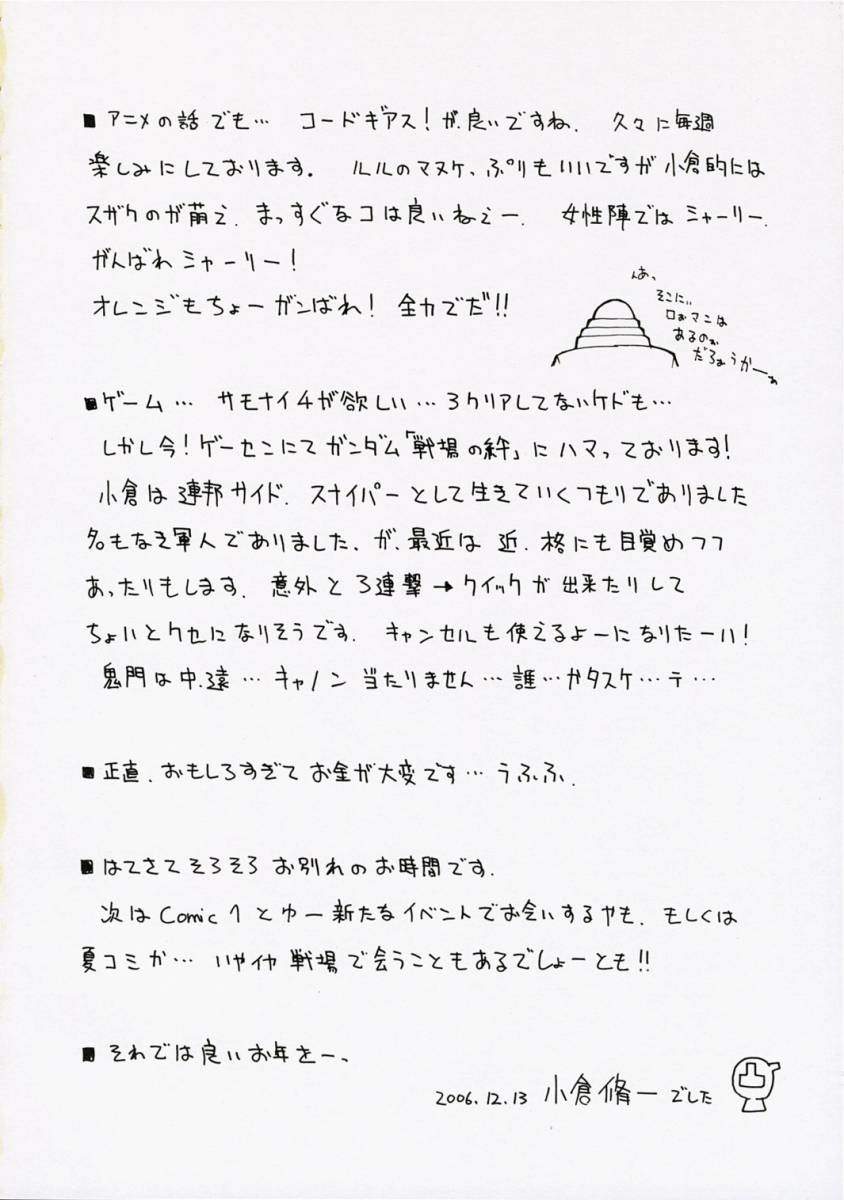 ■アニメの話でも… コードギアス!が、良いですね。 久々に毎週
楽しみにしております。 ルルのマヌケ、ぷりもいいですが小倉的には
スザクのが萌え。まっすぐなコは良いねぇー。 女性陣ではシャーリー。
がんばれシャーリー!
オレンジもちょーガンばれ! 全力でだ!!
あぁ、
そこにぃ
ロぉマンは
あるのぉ
だろぉうかーぁ
■ゲーム… サモナイ4が欲しい…3クリアしてないケドも…
しかし今!ゲーセンにてガンダム「戦場の絆」にハマっております!
小倉は連邦サイド。スナイパーとして生きていくつもりでありました
名もなき軍人でありました、が、最近は 近、格にも目覚めつつ
あったりもします。意外と3連撃→クイックが出来たりして
ちょいとクセになりそうです。 キャンセルも使えるよーになりたーい!
鬼門は中、遠… キャノン 当たりません…誰…かタスケ…テ…
■正直、おもしろすぎてお金が大変です…うふふ。
■はてさてそろそろお別れのお時間です。
次はComic1とゆー新たなイベントでお会いするやも、もしくは
夏コミか… いやイヤ戦場で会うこともあるでしょーとも!!
■それでは良いお年をー、
2006.12.13 小倉脩一でした
凸